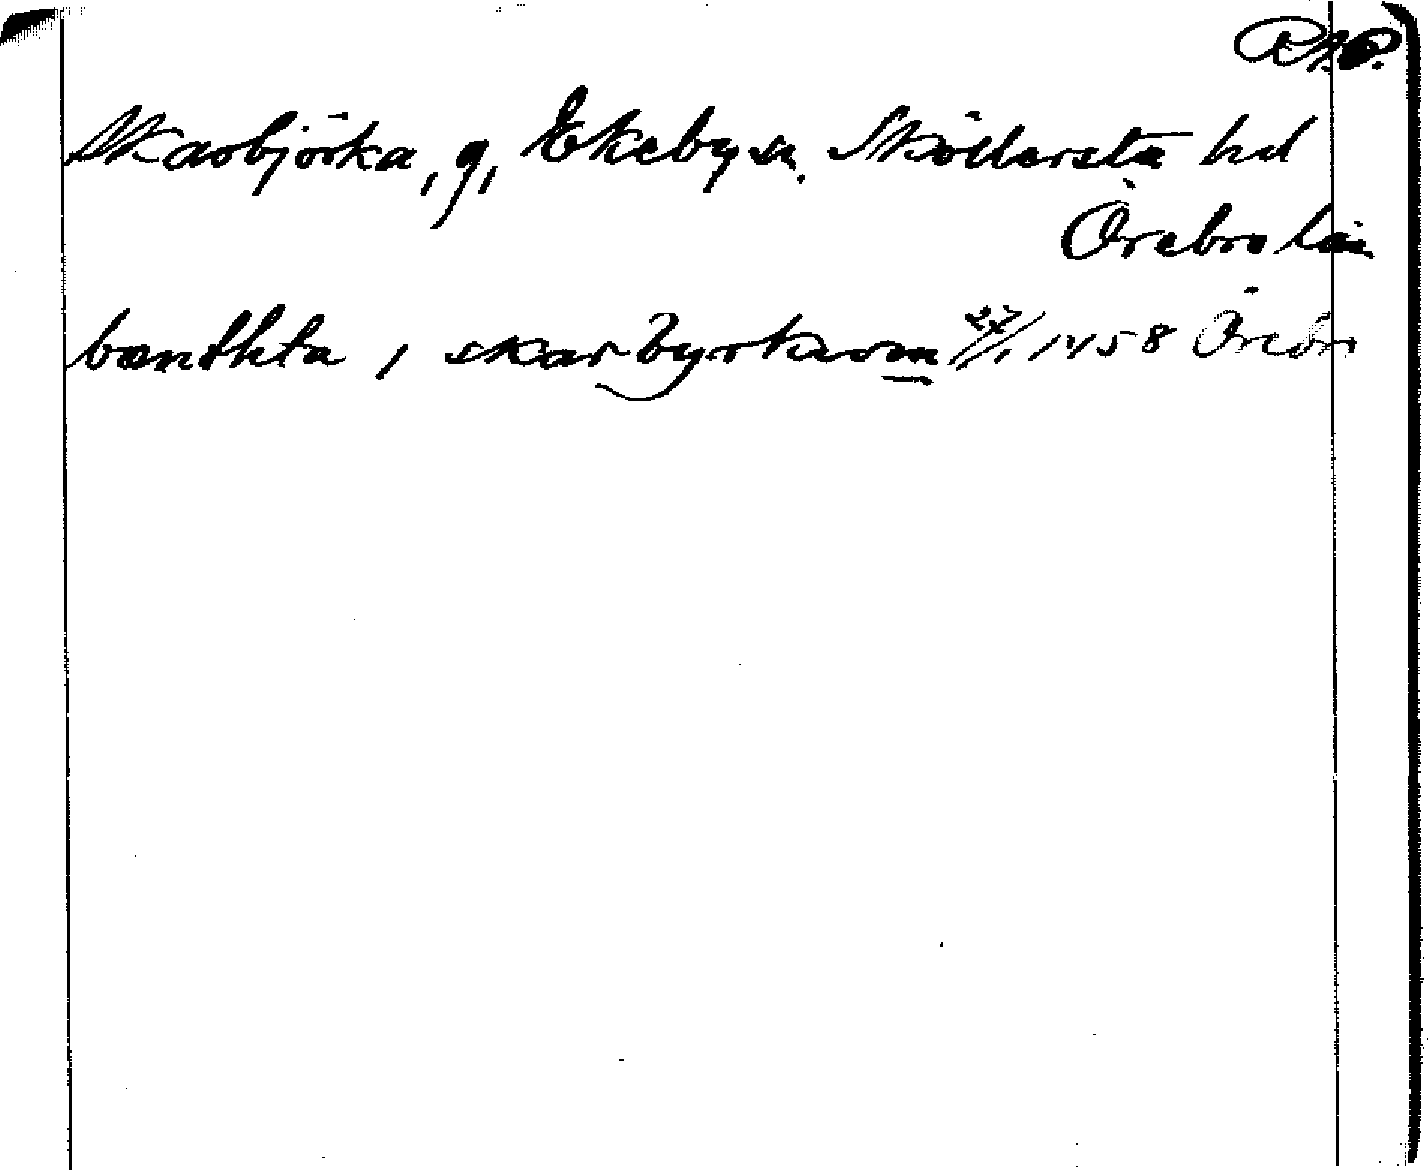 RAP.
Skarbjörka, g, Ekeby sn. Sköllersta hd
Örebro län
bændikta i skarbyrkæom 27/1 1458 Örebro